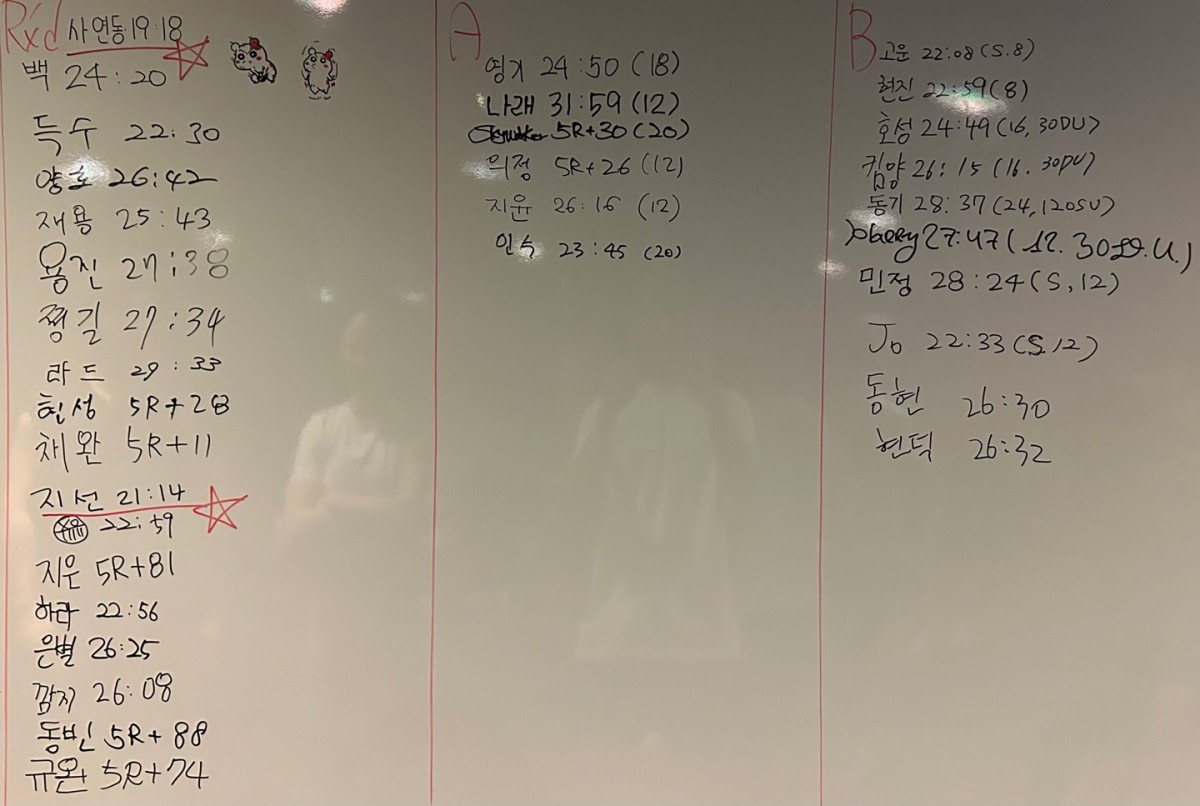 Rx'd
사연동 19:18
백 24:20
득수 22:30
양호 26:42
재용 25:43
용진 27:38
쩡길 27:34
라드 29:33
헌성 5R+28
채완 5R+11
지선 21:14
22:59
지운 5R+81
하라 22:56
은별 26:25
깜지 26:08
동빈 5R+88
규완 5R+74
A
영기 24:50 (18)
나래 31:59 (12)
5R+30 (20)
의정 5R+26 (12)
지윤 26:16 (12)
인숙 23:45 (20)
B
고운 22:08 (S.8)
현진 22:59 (8)
호성 24:49 (16, 30DU)
킴양 26:15 (16. 30DU)
동기 28:37 (24, 120SU)
27:47 (12. 30
민정 28:24 (S, 12)
Jo 22:33 (S.12)
동현 26:30
현덕 26:32